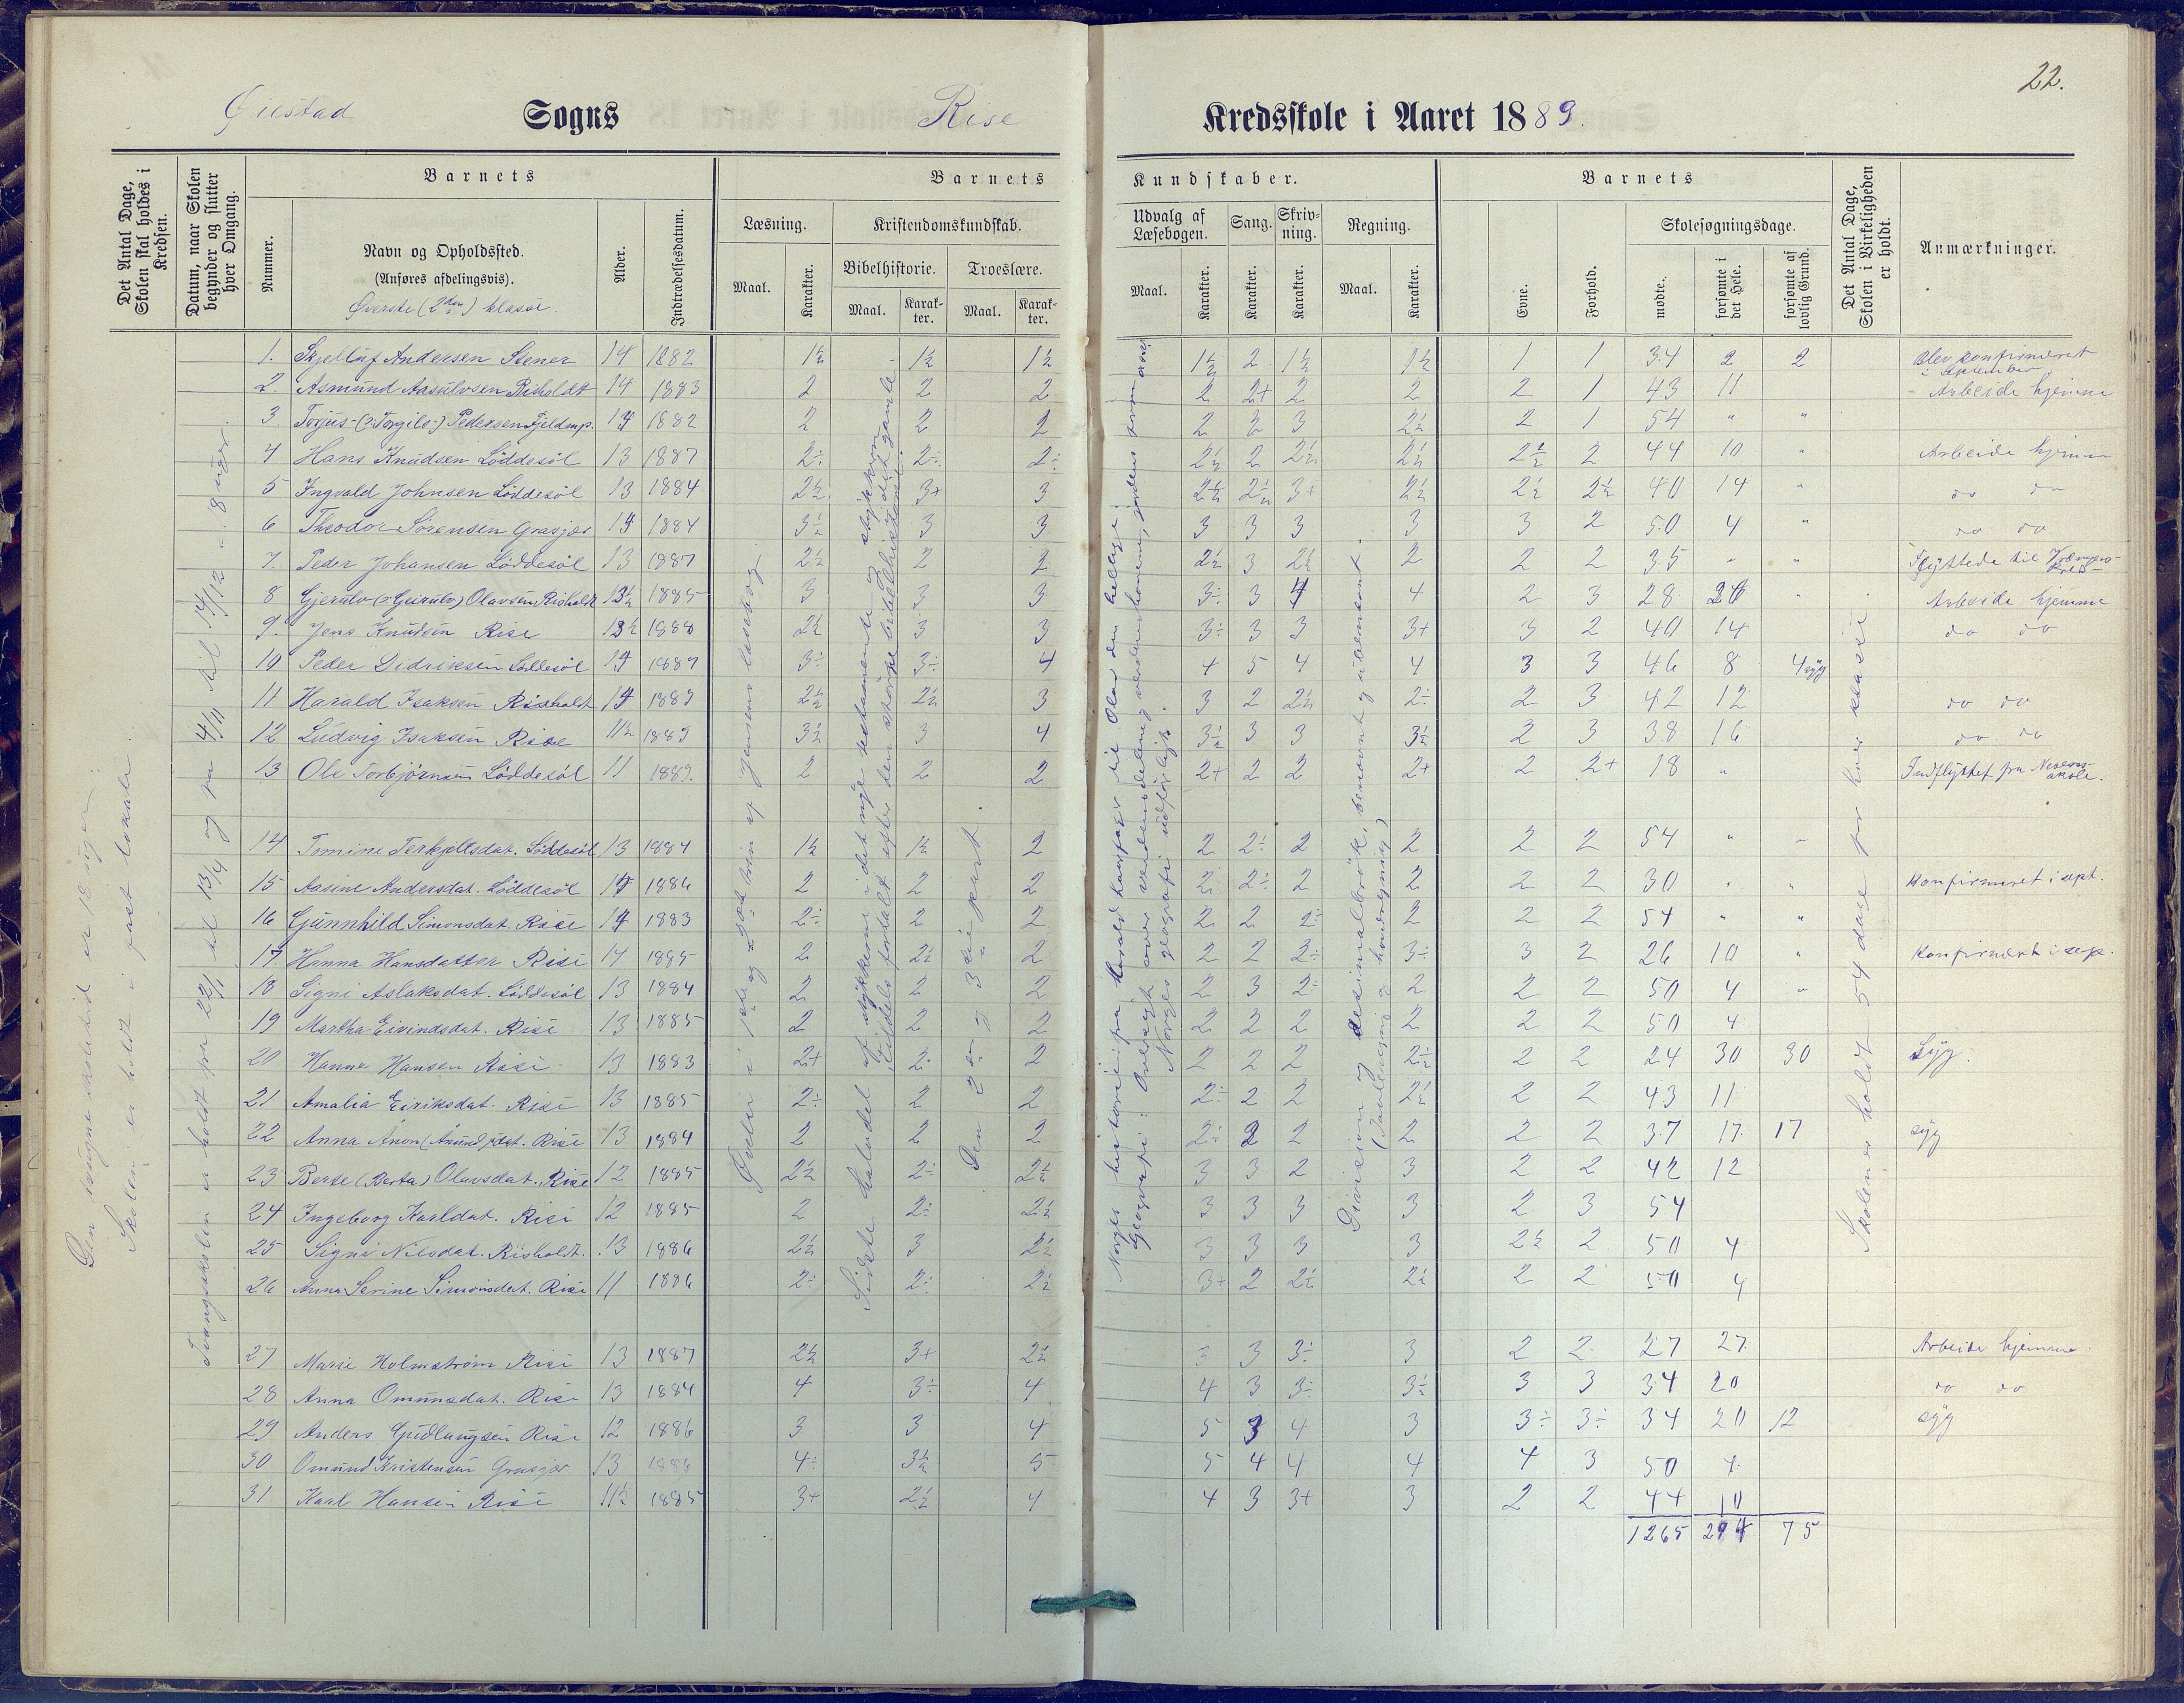 22.
Øiestad Sogns Rise Kredsskole i Aaret 1889.
Det Antal Dage, Skolen skal holdes i Kredsen.
Datum, naar Skolen begynder og slutter hver Omgang.
Barnets
Nummer.
Navn og Opholdssted.
(Anføres afdelingsvis).
Øverste (2den) klasse.
Alder.
Indtrædelsesdatum.
Barnets Kundskaber.
Læsning.
Maal.
Karakter.
Kristendomskundskab.
Bibelhistorie.
Maal.
Karakter.
Troeslære.
Maal.
Karakter.
Udvalg af Læsebogen.
Maal.
Karakter.
Sang.
Karakter.
Skrivning.
Karakter.
Regning.
Maal.
Karakter.
Barnets
Evne.
Forhold.
Skolesøgningsdage.
mødte.
forsømte i det Hele.
forsømte af lovlig Grund.
Det Antal Dage, Skolen i Virkeligheden er holdt.
Anmærkninger.
Den tvungne skoletid er 18 uger.
Skolen er holdt i fast lokale.
Tvangsskolen er holdt fra 22/1 til 13/4 og fra 4/11 til 14/12 = 18 uger.
Øvelse i Jensens læsebog.
Den 2den og 3die part.
Skolen er holdt 54 dage for hver klasse.
1. Skjelluf Andersen Stener 14 1882 1½ 1½ 1½ 1½ 2 1½ 1½ 1 1 34 2 2 Blev konfirmeret i September
2. Asmund Aasulvsen Risholdt 14 1883 2 2 2 2 2+ 2 2 2 1 43 11 - Arbeide hjemme
3. Torjus (: Torgils :) Pedersen Fjeldmp. 14 1882 2 2 2 2 3 3 2½ 2 1 54 " "
4 Hans Knudsen Løddesøl 13 1887 2÷ 2÷ 2÷ 2½ 2 2½ 2½ 2½ 2 44 10 " Arbeide hjemme
5 Ingvald Johnsen Løddesøl 13 1884 2½ 3+ 3 2½ 2½ 3+ 2½ 2½ 2½ 40 14 " do do
6 Theodor Sørensen Grasjær 14 1884 3½ 3 3 3 3 3 3 3 2 50 4 " do do
7. Peder Johansen Løddesøl 13 1887 2½ 2 2 2½ 3 2½ 2 2 2 35 " " Flyttede til
8 Gjerulv (: Geirulv) Olavsen Risholdt 13½ 1885 3 3 3 3÷ 3 4 4 2 3 28 26 " Arbeide hjemme
9. Jens Knudsen Rise 13½ 1888 2½ 3 3 3÷ 3 3 3+ 3 2 40 14 do do
10 Peder Didriksen Løddesøl 14 1887 3÷ 3÷ 4 4 5 4 4 3 3 46 8 4 syg
11 Harald Isaksen Risholdt 14 1889 2½ 2½ 3 3 2 2½ 2÷ 2 3 42 12 do do
12 Ludvig Isaksen Rise 11½ 1889 3½ 3 4 3½ 3 3 3½ 2 3 38 16 do do
13 Ole Torbjørnsen Løddesøl 11 1889. 2 2 2 2+ 2 2 2+ 2 2+ 18 " Indflyttet fra skole.
14 Tomine Terkjeltsdat. Løddesøl 13 1884 1½ 1½ 2 2 2÷ 2 2 2 2 54 " -
15 Aasine Andersdat. Løddesøl 14 1886 2 2 2 2 2÷ 2 2 2 2 30 " " Konfirmeret i sept.
16 Gunnhild Simonsdat. Rise 14 1883 2÷ 2 2 2 2 2÷ 2 2 2 54 " "
17. Hanna Hansdatter Rise 14 1885 2 2½ 2 2 2 2÷ 3÷ 3 2 26 10 " Konfirmert i sep.
18 Signi Aslaksdat. Løddesøl 13 1884 2 2 2 2 3 2÷ 2 2 2 50 4 "
19 Martha Eivindsdat. Rise 13 1885 2 2 2 2 2 2 2 2 2 50 4
20 Hanna Hansen Rise 13 1883 2+ 2÷ 2 2 2 2 2½ 2 2 24 30 30 Syg.
21 Amalia Eiriksdat. Rise 13 1885 2÷ 2 2 2÷ 2 2 2½ 2 2 43 11
22 Anna Ånon (Ånund) sdat. Rise 13 1884 2 2 2 2÷ 2 2 2 2 2 37 17 17 syg
23 Berte (Berta) Olavsdat. Rise 12 1885 2½ 2÷ 2½ 3 3 2 3 2 2 42 12
24 Ingeborg Karldat. Rise 12 1885 2 2÷ 2½ 3 3 3 3 2 3 54
25 Signi Nilsdat. Risholdt. 13 1886 2½ 3 2½ 3 3 3 3 2½ 2 50 4
26 Anna Serine Simonsdat. Rise 11 1886 2÷ 2÷ 2½ 3+ 2 2½ 2½ 2 2 50 4
27 Marie Holmstrøm Rise 13 1887 2½ 3+ 2½ 3 3 3÷ 3 2 2 27 27 Arbeide hjemme.
28 Anna Omunsdat. Rise 13 1884 4 3÷ 4 4 3 3÷ 3½ 3 3 34 20 do do
29 Anders Gudlaugsen Rise 12 1886 3 3 4 5 3 4 3 3÷ 3÷ 34 20 12 syg
30 Omund Kristensen Grasjær 13 1886 4÷ 3½ 5 5 4 4 4 4 3 50 4
31 Karl Hansen Rise 11½ 1885 3+ 2½ 4 4 3 3+ 3 2 2 44 10
1265 294 75